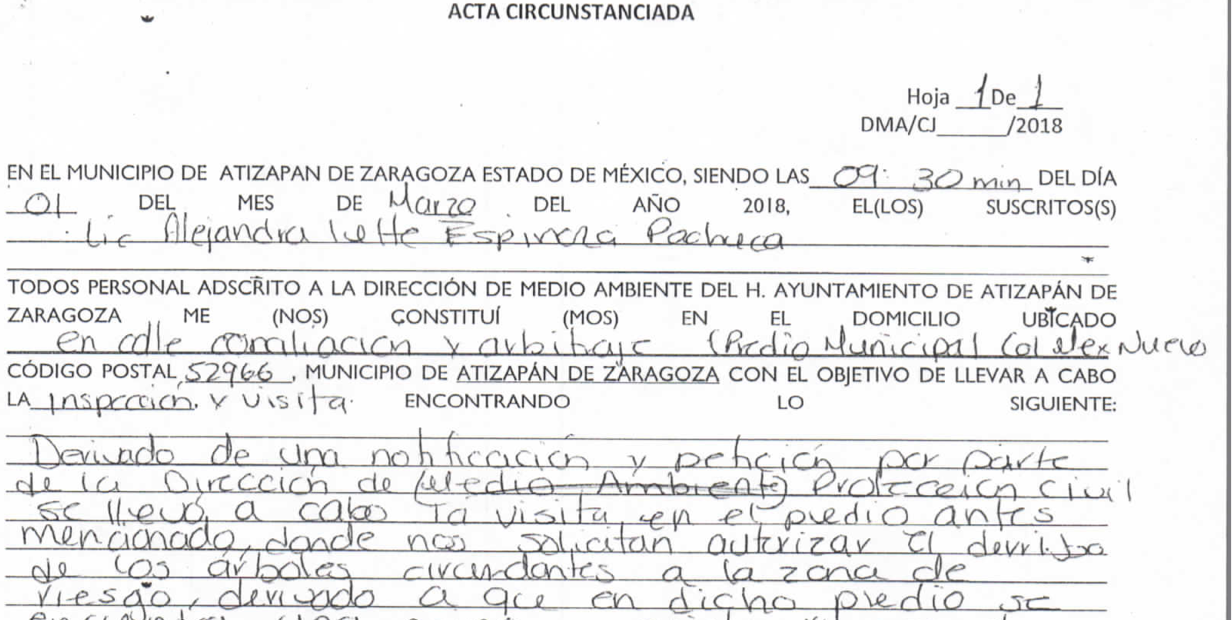 ACTA CIRCUNSTANCIADA
Hoja 1 De 1
DMA/CJ______/2018
EN EL MUNICIPIO DE ATIZAPAN DE ZARAGOZA ESTADO DE MÉXICO, SIENDO LAS 09: 30 min DEL DÍA
01 DEL MES DE Marzo DEL AÑO 2018, EL(LOS) SUSCRITOS(S)
Lic Alejandra Ivette Espinoza Pacheca
TODOS PERSONAL ADSCRITO A LA DIRECCIÓN DE MEDIO AMBIENTE DEL H. AYUNTAMIENTO DE ATIZAPÁN DE
ZARAGOZA ME (NOS) CONSTITUÍ (MOS) EN EL DOMICILIO UBICADO
en calle conciliacion y arbitraje (Predio Municipal Col Mex Nuevo
CÓDIGO POSTAL 52966, MUNICIPIO DE ATIZAPÁN DE ZARAGOZA CON EL OBJETIVO DE LLEVAR A CABO
LA Inspeccion y visita. ENCONTRANDO LO SIGUIENTE:
Derivado de una notificación y petición por parte
de la Dirección de (Medio Ambiente) Proteccion Civil
se llevó a cabo la visita en el predio antes
mencionado, donde nos solicitan autorizar el derribo
de los árboles circundantes a la zona de
riesgo, derivado a que en dicho predio se